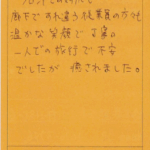 廊下ですれ違う従業員の方も
温かな笑顔で
一人での旅行で不安
でしたが 癒されました。